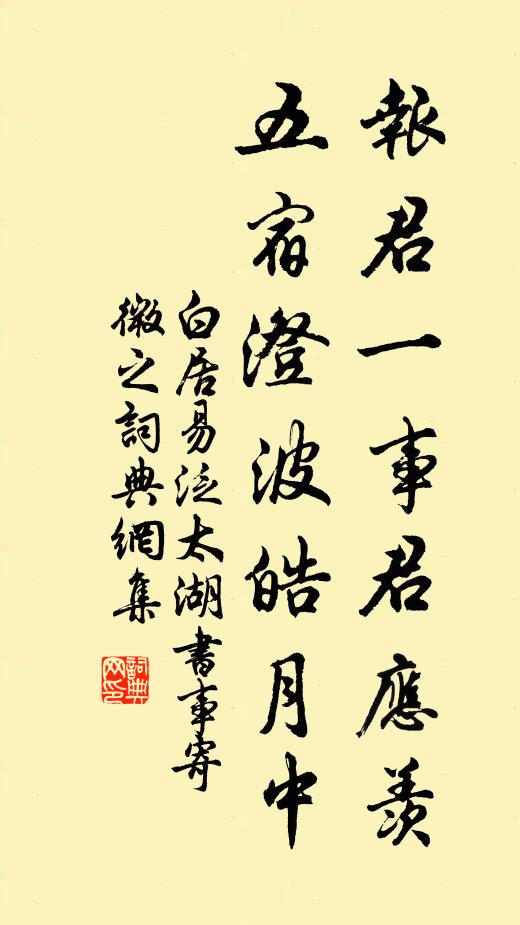 報君一事君應羨
五宿澄波皓月中
白居易泛太湖書事寄
微之詞典網集
詞典
网印